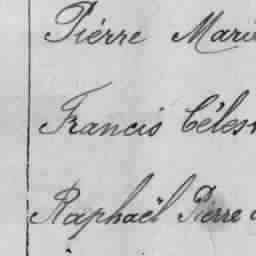 Piérre Marie
Francis Céles
Raphaël Pierre